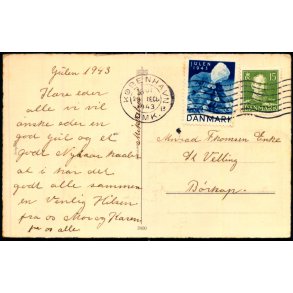 Julen 1943
Kære eder
alle vi vil
ønske eder en
god Jul og et
Godt Nytaar haaber
at i har det
godt alle sammen
en Venlig Hilsen
fra os Mor og Karen
fra os alle
KØBENHAVN
1943
DMK.
JULEN
1943
DANMARK
15
DANMARK
Thomsen Enke
St Velling
Börkop.